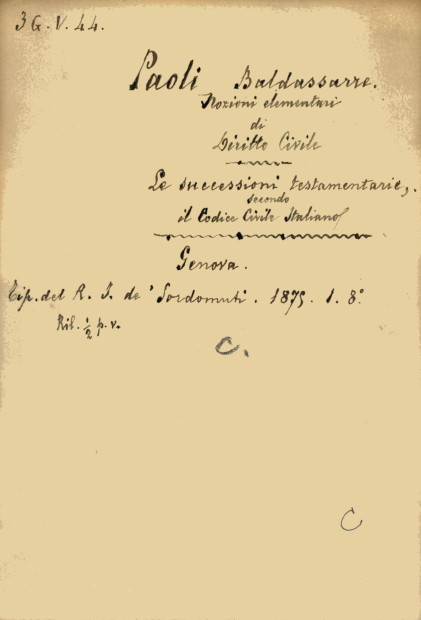 3 G. V. 44.
Paoli Baldassarre.
Nozioni elementari
di
Diritto Civile
Le successioni testamentarie,
secondo
il Codice Civile Italiano
Genova.
Tip. del R. I. de' Sordomuti. 1875. 1. 8º
Ril. 1/2 p. v.
C.
C